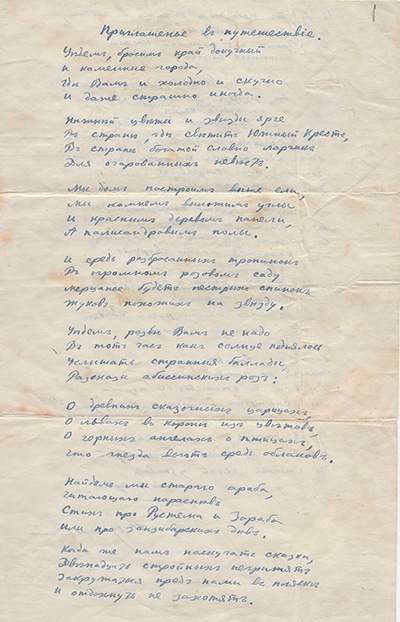 1
Приглашенье въ путешествіе.
Уѣдемъ, бросимъ край докучный
И каменные города,
Гдѣ Вамъ и холодно и скучно
И даже страшно иногда.
Нѣжнѣй цвѣты и звѣзды ярче
Въ странѣ, гдѣ свѣтитъ Южный Крестъ,
Въ странѣ богатой словно ларчикъ
Для очарованныхъ невѣстъ.
Мы домъ построимъ выше ели,
Мы камнемъ выложимъ углы
И краснымъ деревомъ панели,
А палисандровымъ полы.
И средь разбросанныхъ тропинокъ
Въ огромномъ розовомъ саду
Мерцанье будетъ пестрыхъ спинокъ
Жуковъ похожихъ на звѣзду.
Уѣдемъ, развѣ Вамъ не надо
Въ тотъ часъ какъ солнце поднялось
Услышать странныя баллады,
Разсказы абиссинскихъ розъ:
О древнихъ сказочныхъ царицахъ,
О львахъ въ коронѣ изъ цвѣтовъ,
О горныхъ ангелахъ о птицахъ,
Что гнѣзда вьютъ средь облаковъ.
Найдемъ мы стараго араба,
Читающаго нараспѣвъ
Стихъ про Рустема и Зораба
Или про занзибарскихъ дѣвъ.
Когда же намъ наскучатъ сказки,
Двѣнадцать стройныхъ негритятъ
Закружатся предъ нами въ пляскѣ
И отдохнуть не захотятъ.